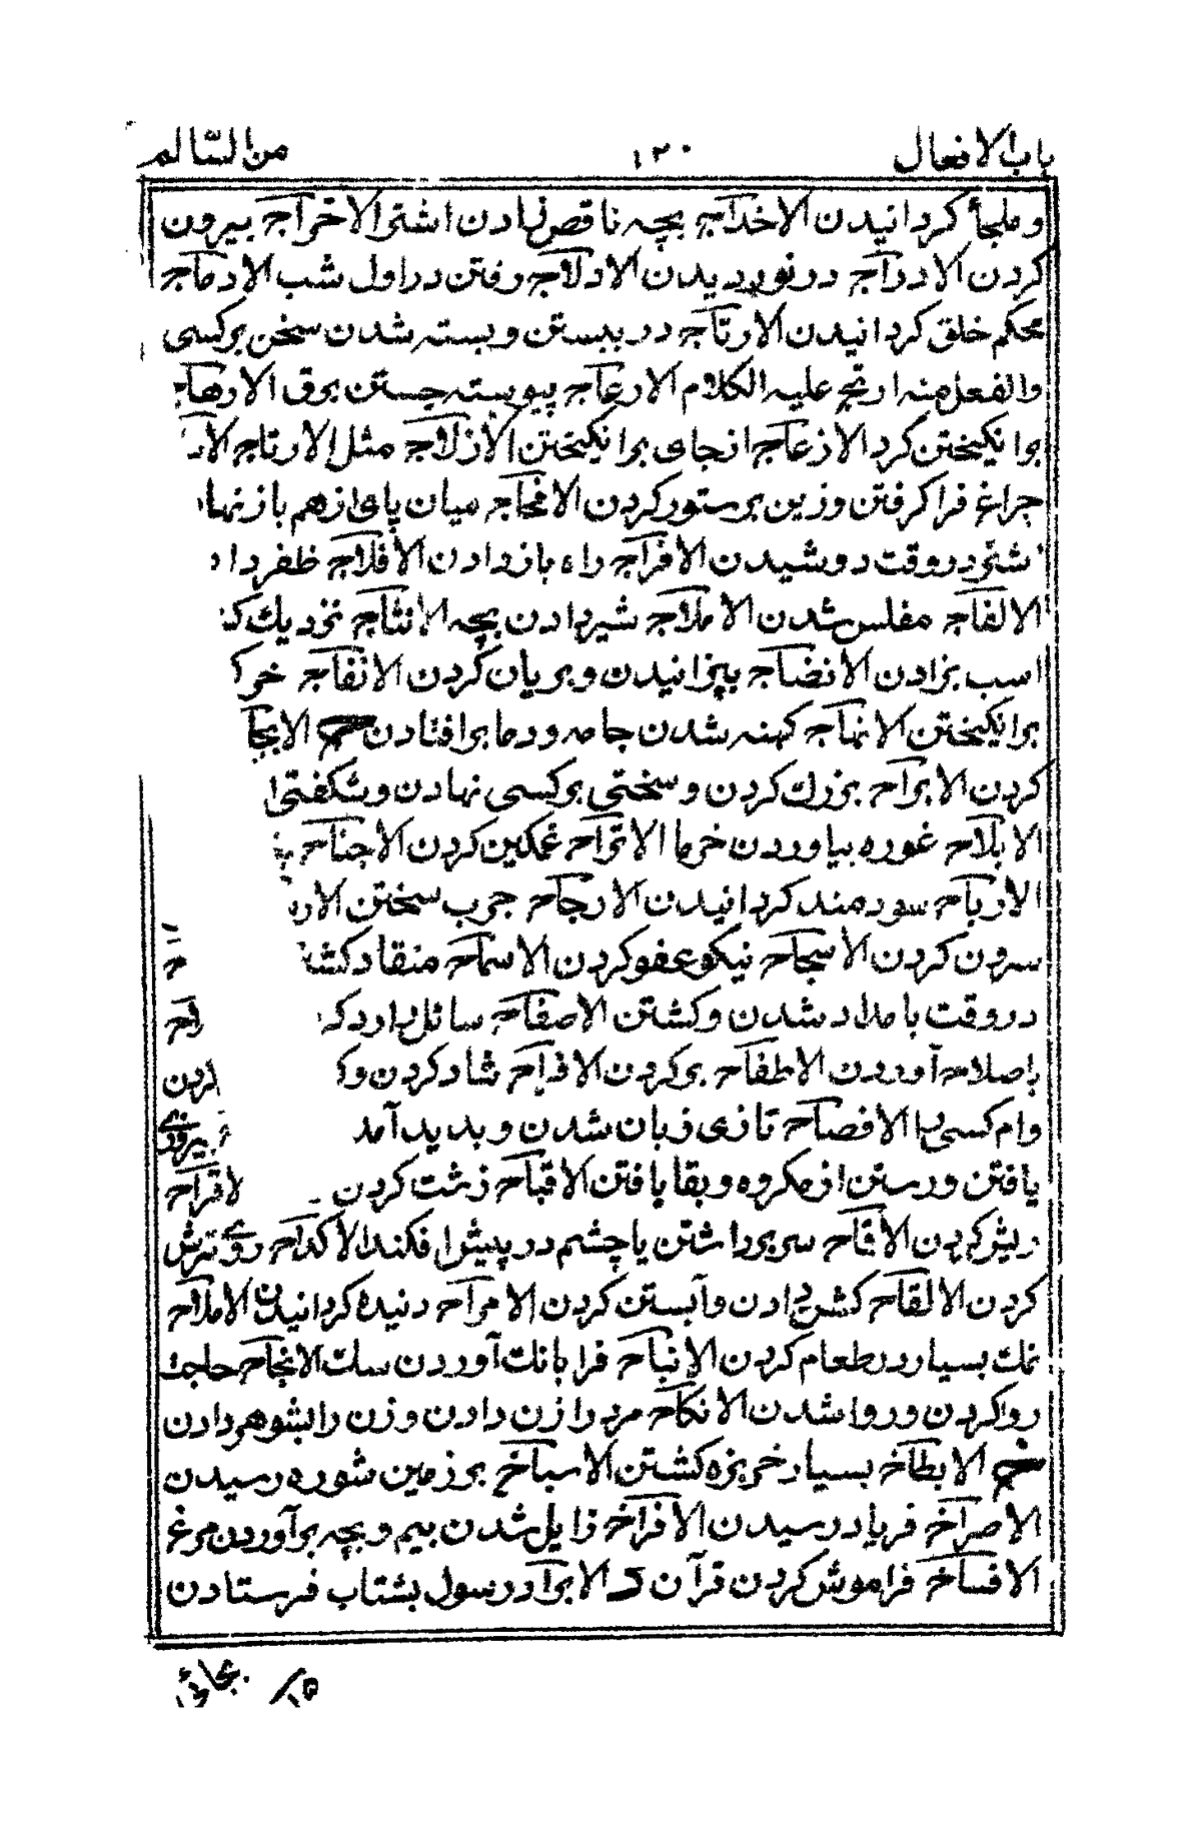 باب الافعال ۱۳۰ من السّالم
و ملجأ کردانیدن الاخداج بچه ناقص زادن اشتر الاخراج بیرون
کردن الادراج درنوردیدن الادلاج رفتن در اول شب الادماج
محکم خلق کردانیدن الارتاج در ببستن و بسته شدن سخن بر کسی
والفعل منه ارتج علیه الکلام الارعاج پیوسته جستن برق الارهاج
برانکیختن کرد الازعاج از جای برانکیختن الازلاج مثل الارتاج
چراغ فرا کرفتن و زین بر ستور کردن الافحاج میان پای از هم باز نهادن
در وقت دوشیدن الافراج راه باز دادن الافلاج ظفر
الالفاج مفلس شدن الاملاج شیر دادن بچه الانتاج نزدیك
اسب بزادن الانضاج بپزانیدن و بریان کردن الانفاج
برانکیختن الانهاج کهنه شدن جامه و دما برافتادن ح
کردن الابراح بزرك کردن و سختی بر کسی نهادن و شکفتی
الابلاح غوره بیاوردن خرما الاتراح غمکین کردن الاجناح
الارباح سودمند کردانیدن الارجاح چرب سختن
کردن الاسجاح نیکو عفو کردن الاسماح منقاد
در وقت بامداد شدن و کشتن الاصفاح سائل را رد
باصلاح آوردن الاطفاح پر کردن الافراح شاد کردن و کردن
وام کسی را الافصاح تازی زبان شدن و بدید آمد
یافتن و رستن از مکروه و بقا یافتن الاقباح زشت کردن لاقراح
ریش کردن الاقماح سر برداشتن یا چشم در پیش افکندن الاکداح روی ترش
کردن الالقاح کشن دادن و آبستن کردن الامراح دنیده کردانیدن الاملاح
نمك بسیار در طعام کردن الانباح فرا بانك آوردن سك الانجاح حاجت
روا کردن و روا شدن الانکاح مرد را زن دادن و زن را بشوهر دادن
خ الابطاخ بسیار خربزه کشتن الاسباخ بر زمین شوره رسیدن
الاصراخ فریاد رسیدن الافراخ زایل شدن بیم و بچه برآوردن مرغ
الافساخ فراموش کردن قرآن د الابراد رسول بشتاب فرستادن